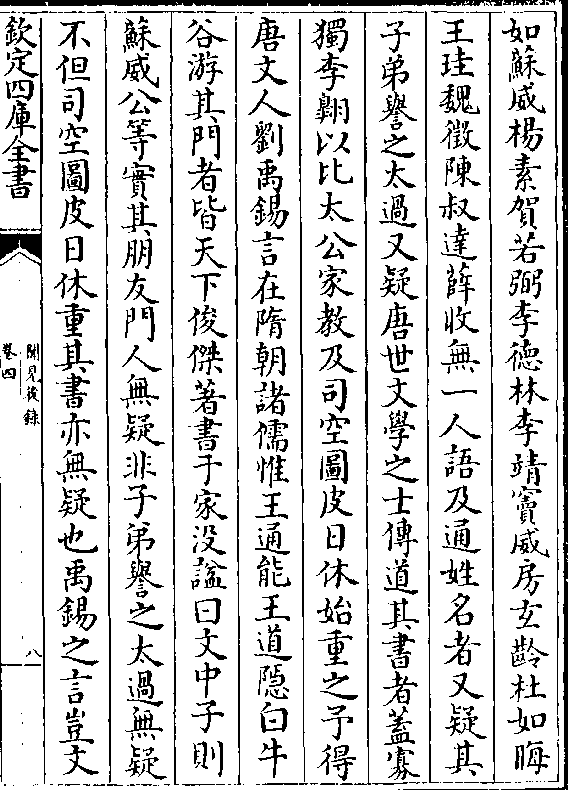 如蘇威楊素賀若弼李德林李靖竇威房玄齡杜如晦
王珪魏徵陳叔達薛收無一人語及通姓名者又疑其
子弟譽之太過又疑唐世文學之士傳道其書者蓋寡
獨李翺以比太公家教及司空圖皮日休始重之予得
唐文人劉禹錫言在隋朝諸儒惟王通能王道隱白牛
谷游其門者皆天下俊傑著書于家没諡曰文中子則
蘇威公等實其朋友門人無疑非子弟譽之太過無疑
不但司空圖皮日休重其書亦無疑也禹錫之言豈文
欽定四庫全書
聞見後録
卷四
八